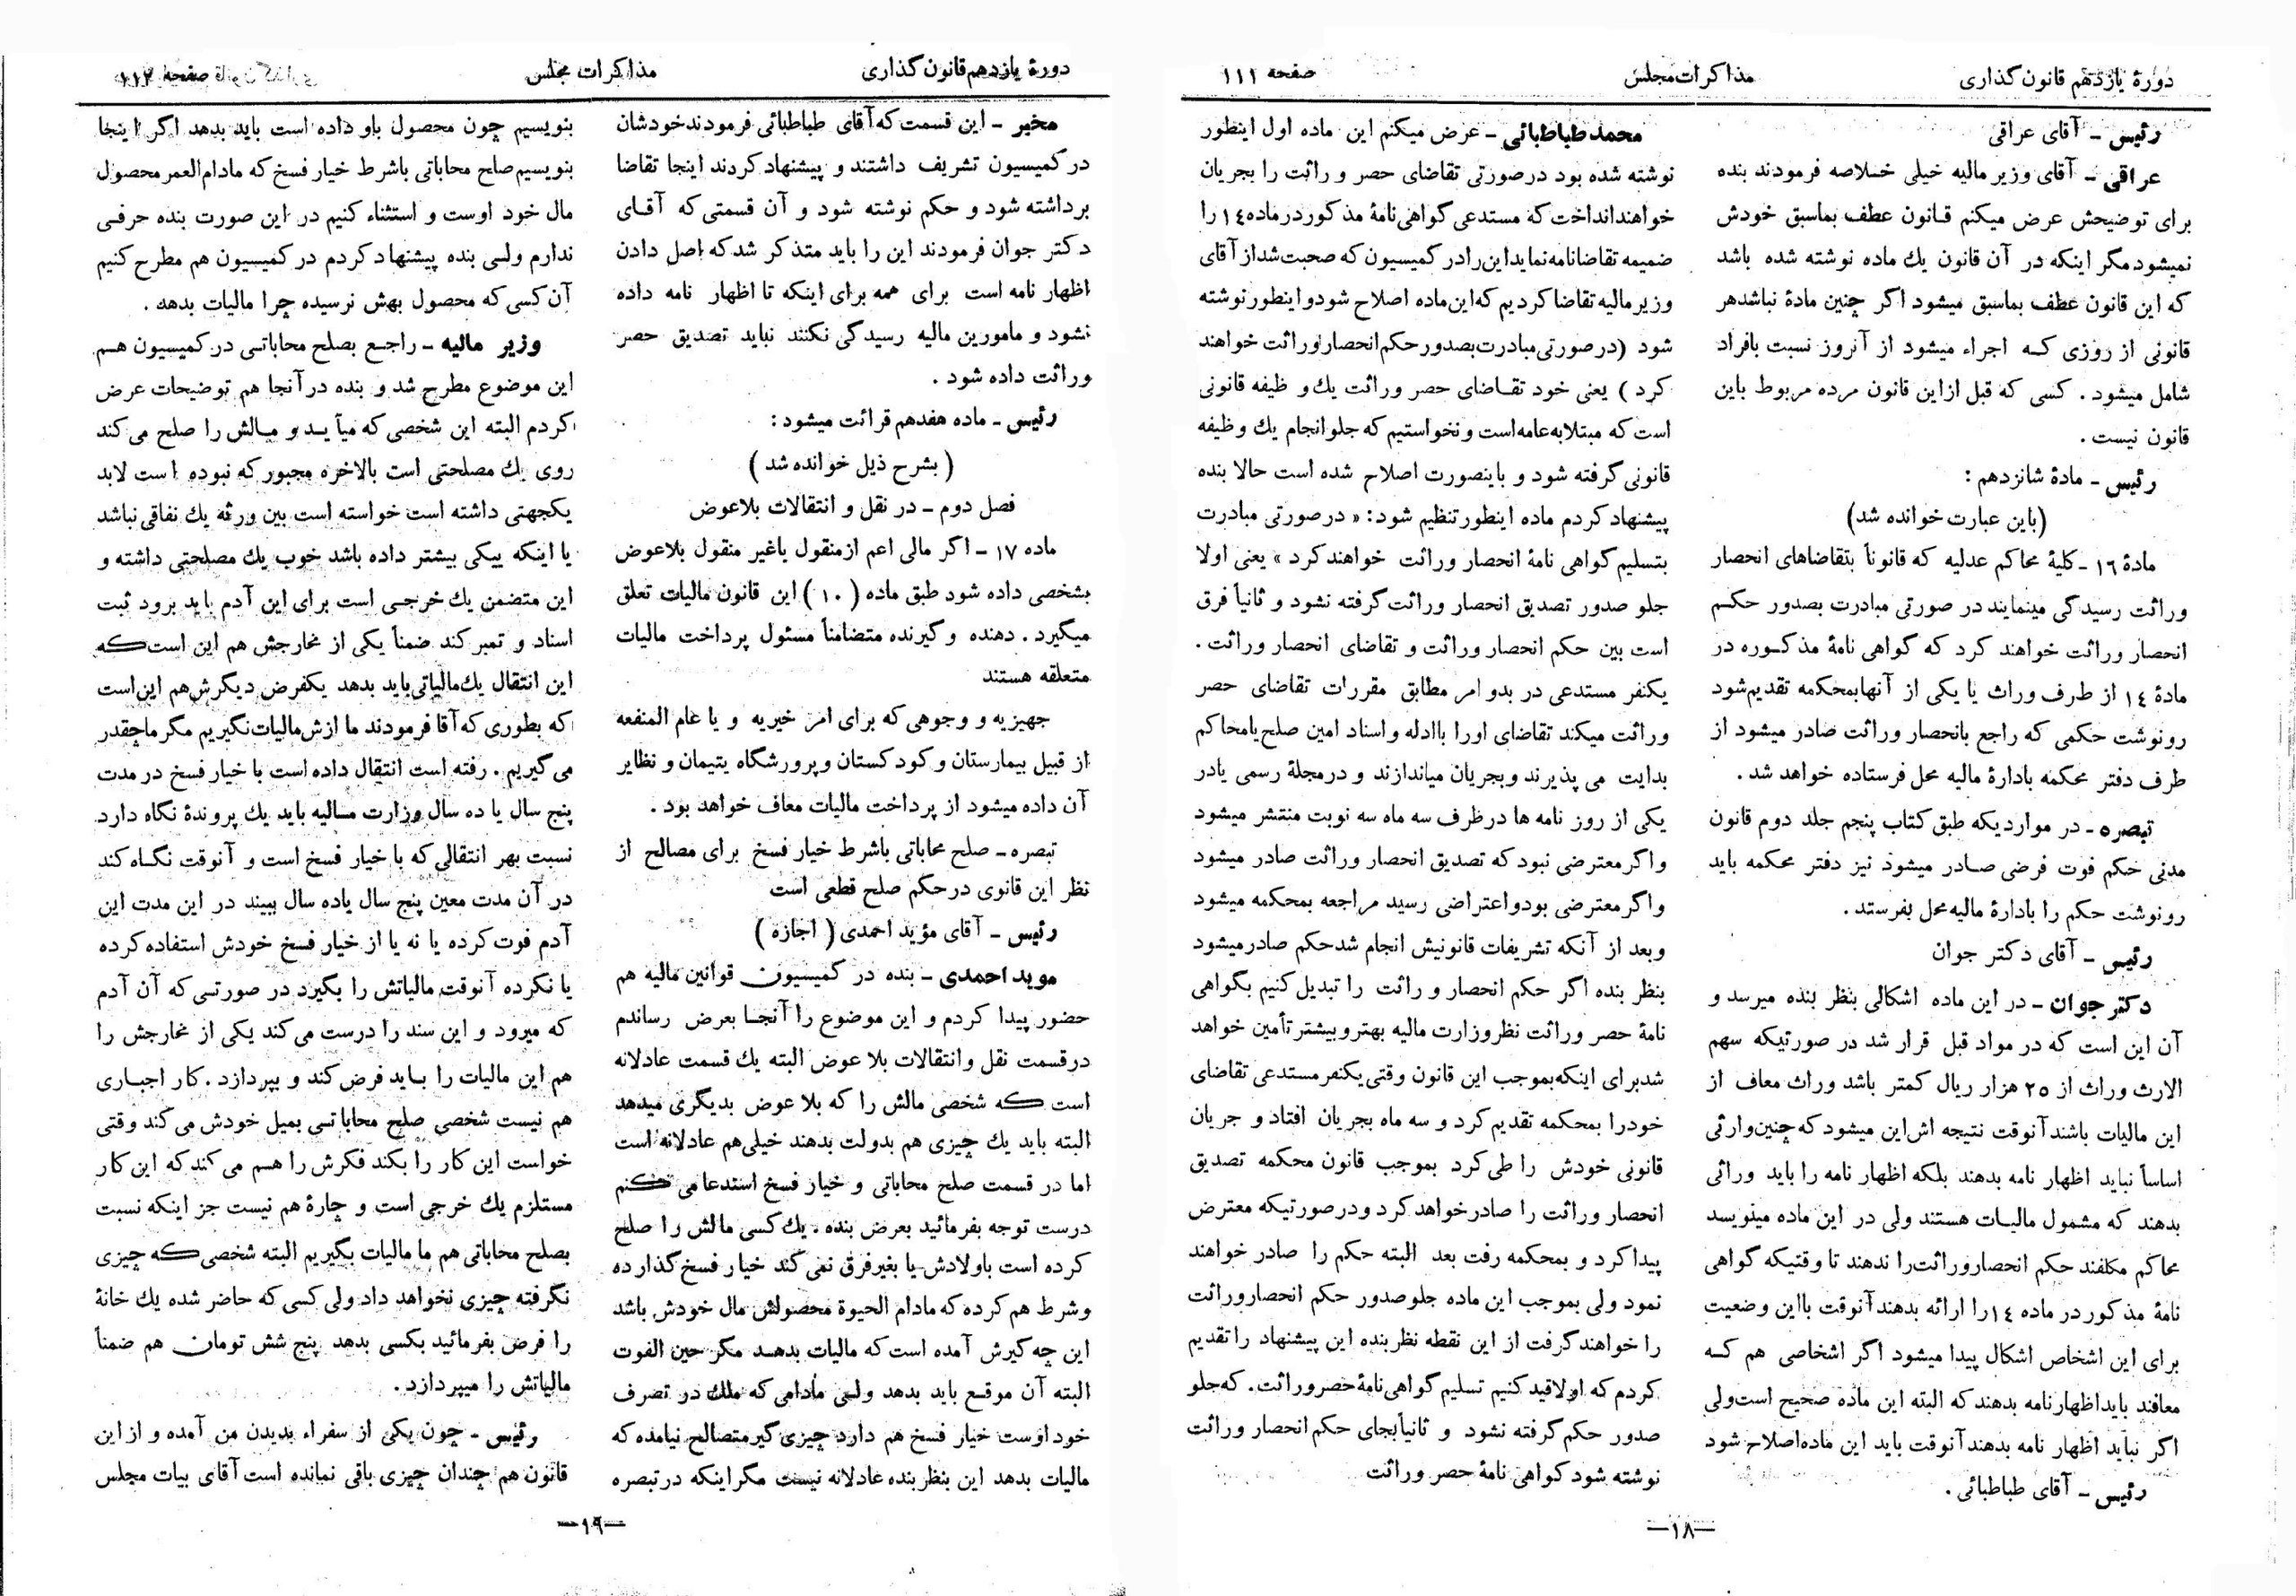 دورهٔ یازدهم قانون‌گذاری
مذاکرات مجلس
صفحه ۱۱۱
رئیس - آقای عراقی
عراقی - آقای وزیر مالیه خیلی خلاصه فرمودند بنده
برای توضیحش عرض میکنم قانون عطف بماسبق خودش
نمیشود مگر اینکه در آن قانون یك ماده نوشته شده باشد
که این قانون عطف بماسبق میشود اگر چنین مادهٔ نباشد هر
قانونی از روزی که اجراء میشود از آنروز نسبت بافراد
شامل میشود . کسی که قبل از این قانون مرده مربوط باین
قانون نیست .
رئیس - مادهٔ شانزدهم :
(باین عبارت خوانده شد)
مادهٔ ۱۶ - کلیهٔ محاکم عدلیه که قانوناً بتقاضاهای انحصار
وراثت رسیدگی مینمایند در صورتی مبادرت بصدور حکم
انحصار وراثت خواهند کرد که گواهی نامهٔ مذکوره در
مادهٔ ۱۴ از طرف وراث یا یکی از آنها بمحکمه تقدیم شود
رونوشت حکمی که راجع بانحصار وراثت صادر میشود از
طرف دفتر محکمه بادارهٔ مالیه محل فرستاده خواهد شد .
تبصره - در مواردیکه طبق کتاب پنجم جلد دوم قانون
مدنی حکم فوت فرضی صادر میشود نیز دفتر محکمه باید
رونوشت حکم را بادارهٔ مالیه محل بفرستد .
رئیس - آقای دکتر جوان
دکتر جوان - در این ماده اشکالی بنظر بنده میرسد و
آن این است که در مواد قبل قرار شد در صورتیکه سهم
الارث وراث از ۲۵ هزار ریال کمتر باشد وراث معاف از
این مالیات باشند آنوقت نتیجه اش این میشود که چنین وارثی
اساساً نباید اظهار نامه بدهند بلکه اظهار نامه را باید وراثی
بدهند که مشمول مالیات هستند ولی در این ماده مینویسد
محاکم مکلفند حکم انحصار وراثت را ندهند تا وقتیکه گواهی
نامهٔ مذکور در ماده ۱۴ را ارائه بدهند آنوقت بااین وضعیت
برای این اشخاص اشکال پیدا میشود اگر اشخاصی هم که
معافند باید اظهارنامه بدهند که البته این ماده صحیح است ولی
اگر نباید اظهار نامه بدهند آنوقت باید این ماده اصلاح شود
رئیس - آقای طباطبائی .
محمد طباطبائی - عرض میکنم این ماده اول اینطور
نوشته شده بود در صورتی تقاضای حصر و راثت را بجریان
خواهند انداخت که مستدعی گواهی نامهٔ مذکور در ماده ۱۴ را
ضمیمه تقاضانامه نماید این را در کمیسیون که صحبت شد از آقای
وزیر مالیه تقاضا کردیم که این ماده اصلاح شود و اینطور نوشته
شود (در صورتی مبادرت بصدور حکم انحصار وراثت خواهند
کرد ) یعنی خود تقاضای حصر وراثت یك و ظیفه قانونی
است که مبتلابه عامه است و نخواستیم که جلو انجام یك وظیفه
قانونی گرفته شود و باینصورت اصلاح شده است حالا بنده
پیشنهاد کردم ماده اینطور تنظیم شود: « در صورتی مبادرت
بتسلیم گواهی نامهٔ انحصار وراثت خواهند کرد » یعنی اولا
جلو صدور تصدیق انحصار وراثت گرفته نشود و ثانیاً فرق
است بین حکم انحصار وراثت و تقاضای انحصار وراثت .
یکنفر مستدعی در بدو امر مطابق مقررات تقاضای حصر
وراثت میکند تقاضای اورا باادله و اسناد امین صلح یا محاکم
بدایت می پذیرند و بجریان میاندازند و در مجلهٔ رسمی یا در
یکی از روز نامه ها در ظرف سه ماه سه نوبت منتشر میشود
و اگر معترضی نبود که تصدیق انحصار وراثت صادر میشود
و اگر معترضی بود و اعتراضی رسید مراجعه بمحکمه میشود
و بعد از آنکه تشریفات قانونیش انجام شد حکم صادر میشود
بنظر بنده اگر حکم انحصار و راثت را تبدیل کنیم بگواهی
نامهٔ حصر وراثت نظر وزارت مالیه بهتر و بیشتر تأمین خواهد
شد برای اینکه بموجب این قانون وقتی یکنفر مستدعی تقاضای
خودرا بمحکمه تقدیم کرد و سه ماه بجریان افتاد و جریان
قانونی خودش را طی کرد بموجب قانون محکمه تصدیق
انحصار وراثت را صادر خواهد کرد و در صورتیکه معترض
پیدا کرد و بمحکمه رفت بعد البته حکم را صادر خواهند
نمود ولی بموجب این ماده جلو صدور حکم انحصار وراثت
را خواهند گرفت از این نقطه نظر بنده این پیشنهاد را تقدیم
کردم که اولا قید کنیم تسلیم گواهی نامهٔ حصر وراثت . که جلو
صدور حکم گرفته نشود و ثانیاً بجای حکم انحصار وراثت
نوشته شود گواهی نامهٔ حصر وراثت
—۱۸—
دورهٔ یازدهم قانون گذاری
مذاکرات مجلس
صفحه ۱۱۲
مخبر - این قسمت که آقای طباطبائی فرمودند خودشان
در کمیسیون تشریف داشتند و پیشنهاد کردند اینجا تقاضا
برداشته شود و حکم نوشته شود و آن قسمتی که آقای
دکتر جوان فرمودند این را باید متذکر شد که اصل دادن
اظهار نامه است برای همه برای اینکه تا اظهار نامه داده
نشود و مامورین مالیه رسیدگی نکنند نباید تصدیق حصر
وراثت داده شود .
رئیس - ماده هفدهم قرائت میشود :
( بشرح ذیل خوانده شد )
فصل دوم - در نقل و انتقالات بلاعوض
ماده ۱۷ - اگر مالی اعم از منقول یا غیر منقول بلاعوض
بشخصی داده شود طبق ماده ( ۱۰ ) این قانون مالیات تعلق
میگیرد . دهنده و گیرنده متضامناً مسئول پرداخت مالیات
متعلقه هستند
جهیزیه و وجوهی که برای امر خیریه و یا عام المنفعه
از قبیل بیمارستان و کودکستان و پرورشگاه یتیمان و نظایر
آن داده میشود از پرداخت مالیات معاف خواهد بود .
تبصره - صلح محاباتی باشرط خیار فسخ برای مصالح از
نظر این قانوی در حکم صلح قطعی است
رئیس - آقای مؤید احمدی ( اجازه )
موید احمدی - بنده در کمیسیون قوانین مالیه هم
حضور پیدا کردم و این موضوع را آنجا بعرض رساندم
در قسمت نقل و انتقالات بلا عوض البته یك قسمت عادلانه
است که شخصی مالش را که بلا عوض بدیگری میدهد
البته باید یك چیزی هم بدولت بدهند خیلی هم عادلانه است
اما در قسمت صلح محاباتی و خیار فسخ استدعا می کنم
درست توجه بفرمائید بعرض بنده . یك کسی مالش را صلح
کرده است باولادش یا بغیر فرق نمی کند خیار فسخ گذارده
و شرط هم کرده که مادام الحیوة محصولش مال خودش باشد
این چه گیرش آمده است که مالیات بدهد مگر حین الفوت
البته آن موقع باید بدهد ولی مادامی که ملك در تصرف
خود اوست خیار فسخ هم دارد چیزی گیر متصالح نیامده که
مالیات بدهد این بنظر بنده عادلانه نیست مگر اینکه در تبصره
بنویسیم چون محصول باو داده است باید بدهد اگر اینجا
بنویسیم صلح محاباتی باشرط خیار فسخ که مادام العمر محصول
مال خود اوست و استثناء کنیم در این صورت بنده حرفی
ندارم ولی بنده پیشنهاد کردم در کمیسیون هم مطرح کنیم
آن کسی که محصول بهش نرسیده چرا مالیات بدهد .
وزیر مالیه - راجع بصلح محاباتی در کمیسیون هم
این موضوع مطرح شد و بنده در آنجا هم توضیحات عرض
کردم البته این شخصی که میآید و مالش را صلح می کند
روی یك مصلحتی است بالاخره مجبور که نبوده است لابد
یکجهتی داشته است خواسته است بین ورثه یك نفاقی نباشد
یا اینکه بیکی بیشتر داده باشد خوب یك مصلحتی داشته و
این متضمن یك خرجی است برای این آدم باید برود ثبت
اسناد و تمبر کند ضمناً یکی از مخارجش هم این است که
این انتقال یك مالیاتی باید بدهد یکفرض دیگرش هم این است
که بطوری که آقا فرمودند ما ازش مالیات نگیریم مگر ما چقدر
می گیریم . رفته است انتقال داده است با خیار فسخ در مدت
پنج سال یا ده سال وزارت مالیه باید یك پروندهٔ نگاه دارد
نسبت بهر انتقالی که با خیار فسخ است و آنوقت نگاه کند
در آن مدت معین پنج سال یاده سال ببیند در این مدت این
آدم فوت کرده یا نه یا از خیار فسخ خودش استفاده کرده
یا نکرده آنوقت مالیاتش را بگیرد در صورتی که آن آدم
که میرود و این سند را درست می کند یکی از مخارجش را
هم این مالیات را باید فرض کند و بپردازد . کار اجباری
هم نیست شخصی صلح محاباتی بمیل خودش می کند وقتی
خواست این کار را بکند فکرش را هم می کند که این کار
مستلزم یك خرجی است و چارهٔ هم نیست جز اینکه نسبت
بصلح محاباتی هم ما مالیات بگیریم البته شخصی که چیزی
نگرفته چیزی نخواهد داد ولی کسی که حاضر شده یك خانهٔ
را فرض بفرمائید بکسی بدهد پنج شش تومان هم ضمناً
مالیاتش را میپردازد .
رئیس - چون یکی از سفراء بدیدن من آمده و از این
قانون هم چندان چیزی باقی نمانده است آقای بیات مجلس
—۱۹—